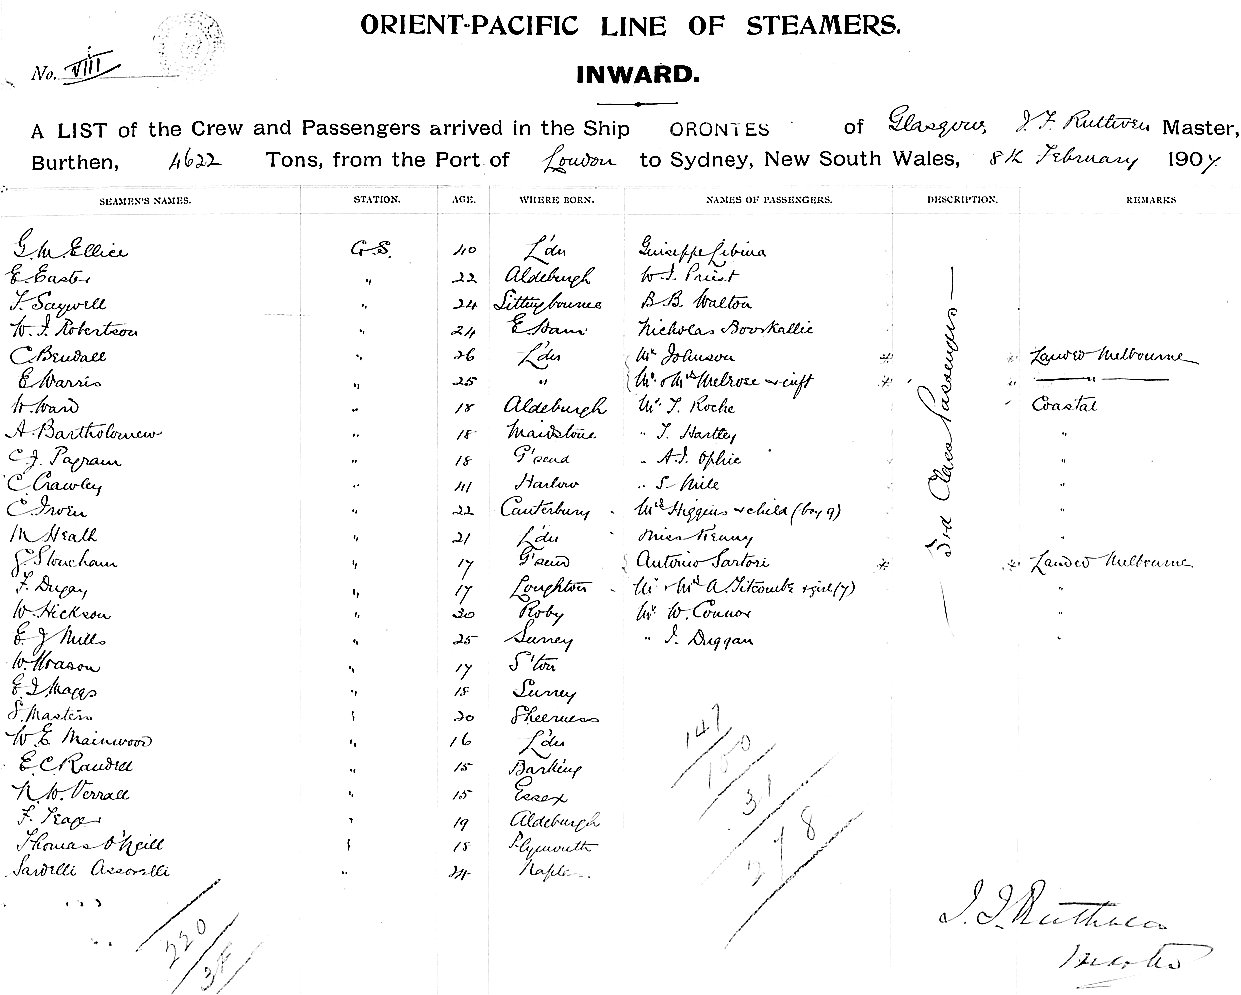 ORIENT-PACIFIC LINE OF STEAMERS.
No. VIII
INWARD.
A LIST of the Crew and Passengers arrived in the Ship ORONTES of Glasgow, J. F. Ruthven Master,
Burthen, 4622 Tons, from the Port of London to Sydney, New South Wales, 8th February 1907
SEAMEN'S NAMES. STATION. AGE. WHERE BORN. NAMES OF PASSENGERS. DESCRIPTION. REMARKS
G. M. Ellice G.S. 40 L'don Guiseppe Libina
E. Easter " 22 Aldeburgh W. J. Priest
F. Saywell " 24 Sittingbourne B. B. Walton
W. J. Robertson " 24 E. Ham Nicholas
C. Bendall " 26 L'don Mr Johnson * * Landed Melbourne
E. Harris " 25 " Mr & Mrs Melrose & inft * * "
W. Ward " 18 Aldeburgh Mr. T. Roche Coastal
A. Bartholomew " 18 Maidstone " T. Hartley "
C. J. Pagram " 18 G'send " A. J. Ophie "
C. Crawley " 41 Harlow " S. Mile "
C. Irven " 22 Canterbury Mrs Higgins & child (boy 9) "
M. Heath " 21 L'don Miss Kenny "
Stoneham " 17 G'send Antonio Sartori * * Landed Melbourne
F. Dugay " 17 Loughton Mr & Mrs A. Titcombe & girl (7) "
W. Hickson " 30 Roby Mr W. Connor "
E. J. Mills " 25 Surrey " J. Duggan "
W. " 17 S'ton
E. J. Maggs " 18 Surrey
S. Masters " 20 Sheerness
W. E. Mainwood " 16 L'don
E. C. Randell " 15 Barking
N. W. Verrall " 15 Essex
F. " 19 Aldeburgh
Thomas O'Neill " 18 Plymouth
Sardelli " 24 Naples
3rd Class Passengers
147
100
31
278
220
38
J. F. Ruthven
Master